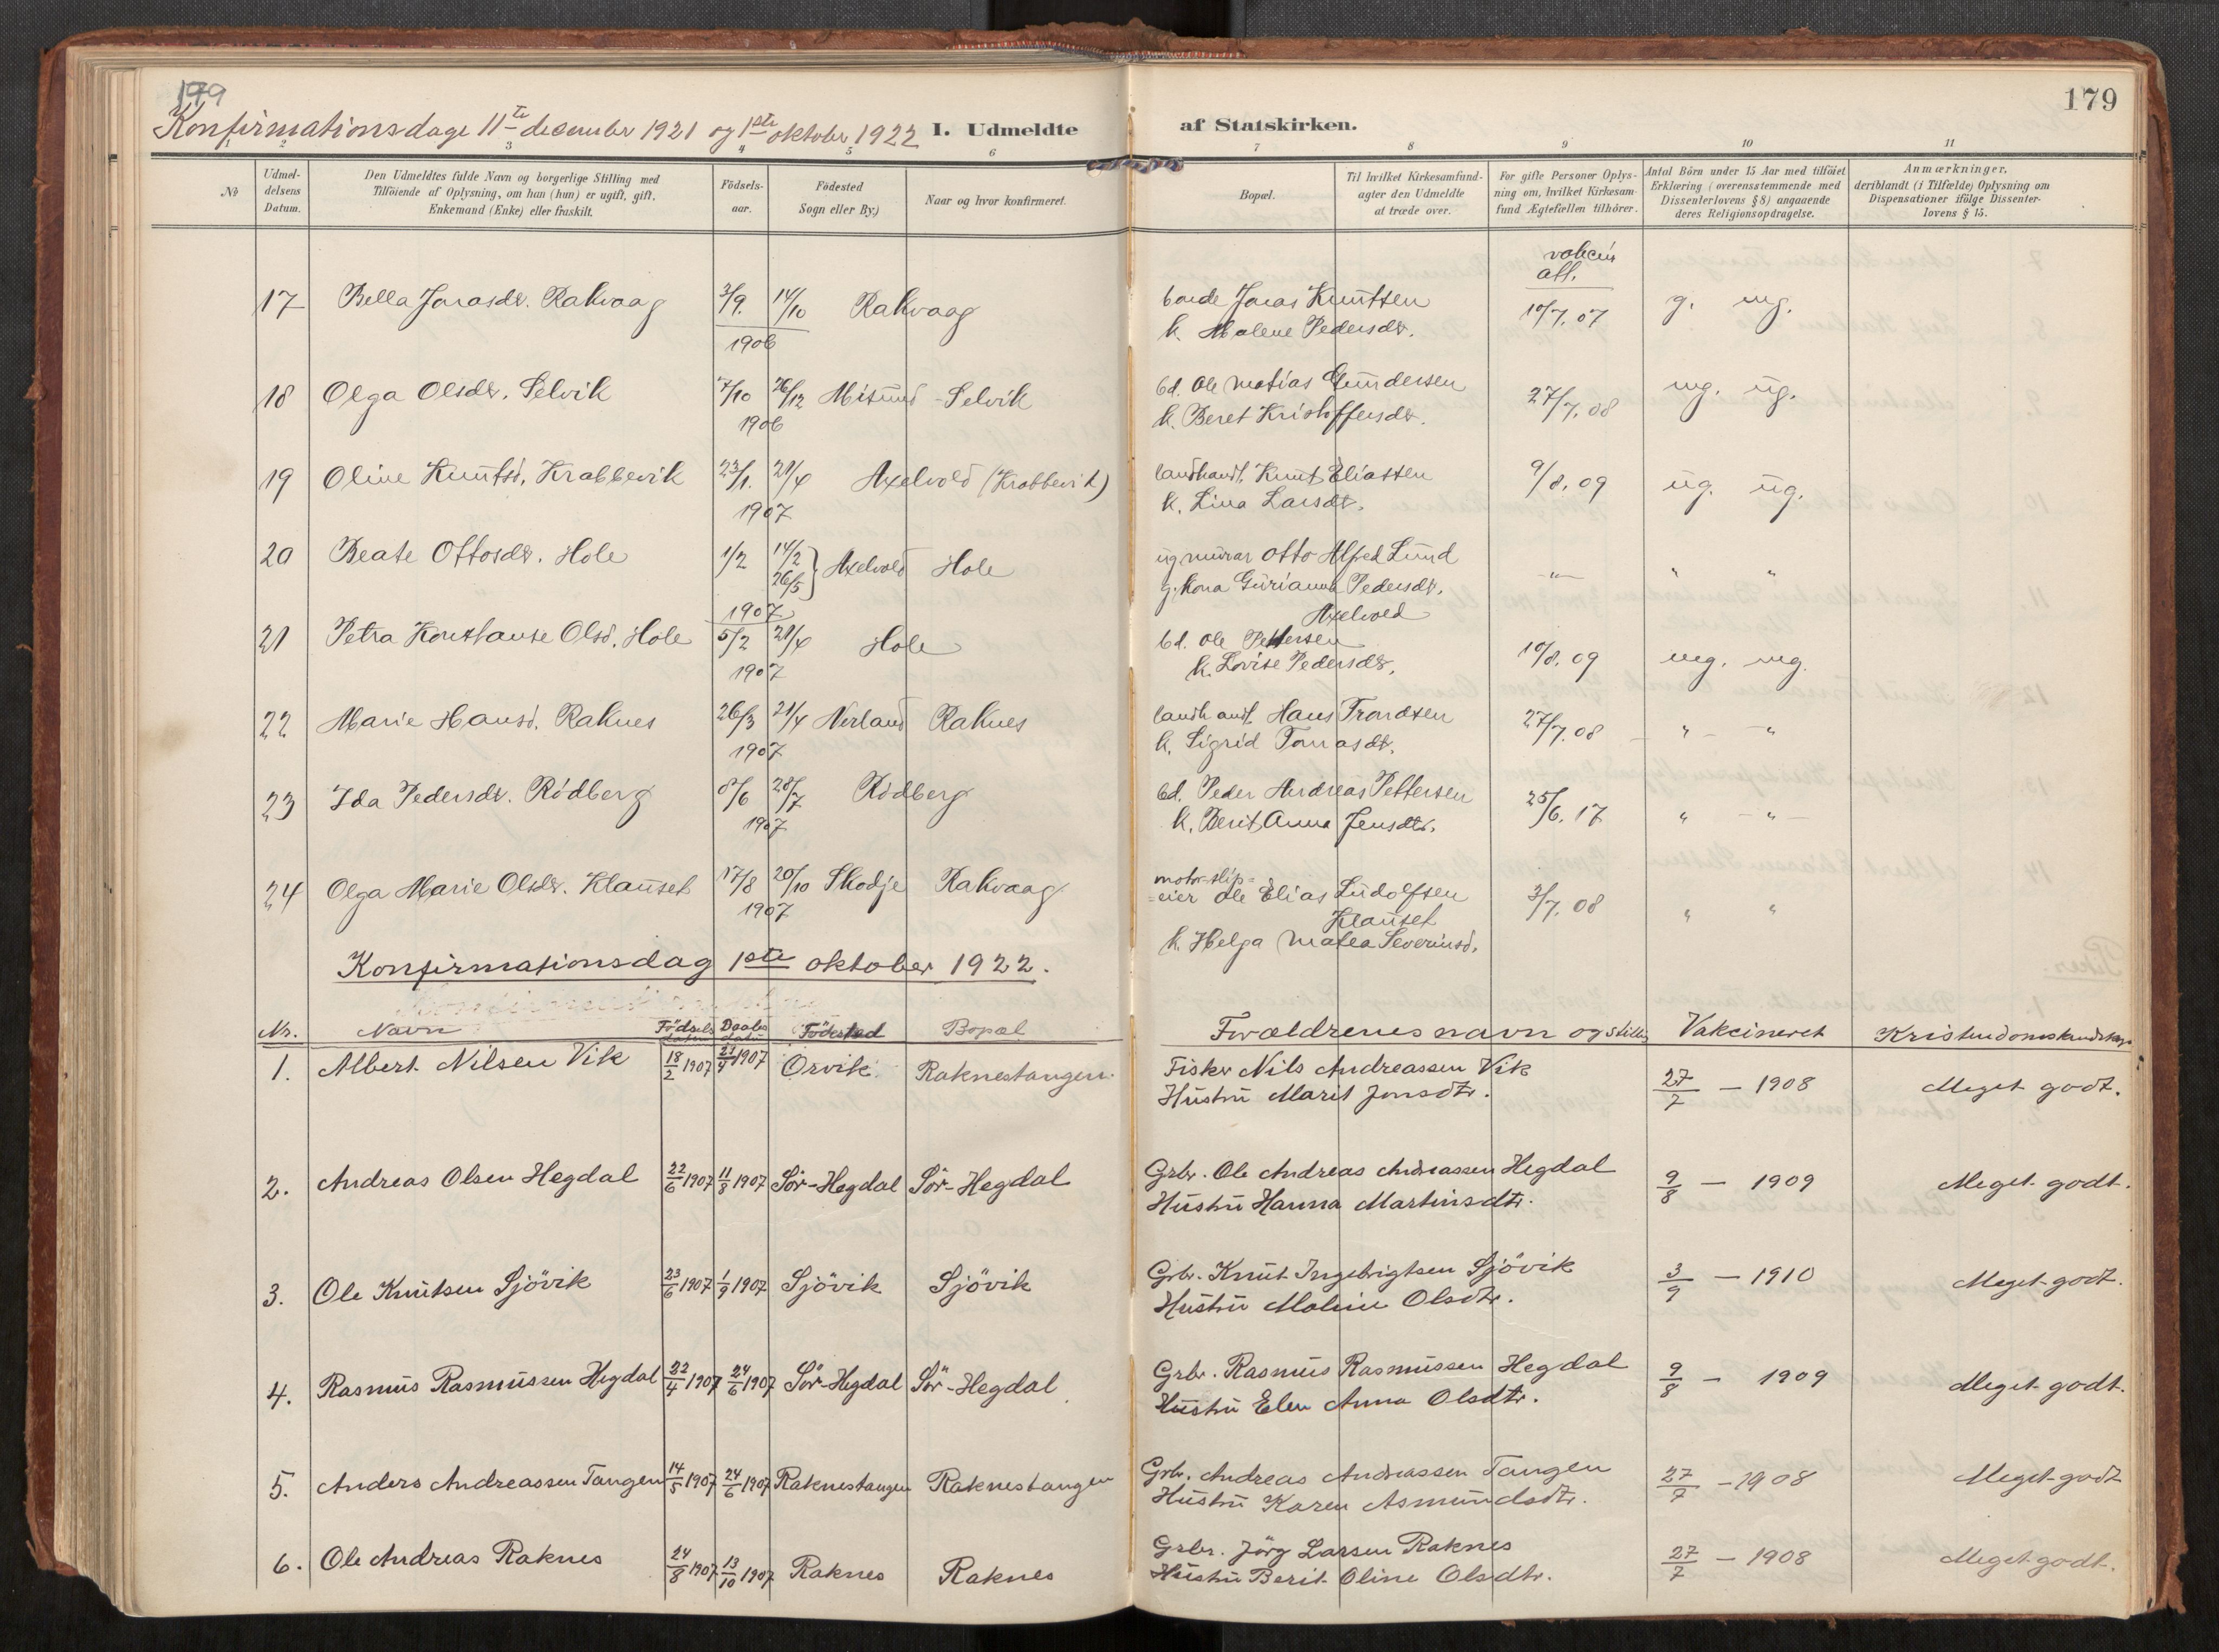 199
179
Konfirmationsdage 11te december 1921 og 1ste oktober 1922 I. Udmeldte af Statskirken.
1 2 3 4 5 6 7 8 9 10 11
No
Udmeldelsens Datum.
Den Udmeldtes fulde Navn og borgerlige Stilling med
Tilföiende af Oplysning, om han (hun) er ugift, gift,
Enkemand (Enke) eller fraskilt.
Födselsaar.
Födested
Sogn eller By.)
Naar og hvor konfirmeret.
Bopæl.
Til hvilket Kirkesamfund-
agter den Udmeldte
at træde over.
For gifte Personer Oplys-
ning om, hvilket Kirkesam-
fund Ægtefællen tilhörer.
Antal Börn under 15 Aar med tilföiet
Erklæring (overensstemmende med
Dissenterlovens § 8) angaaende
deres Religionsopdragelse.
Anmærkninger,
deriblandt (i Tilfælde) Oplysning om
Dispensationer ifölge Dissenter-
lovens § 15.
att.
17 Bella Jonasdr. Rakvaag 3/9. 14/10 Rakvaag bonde Jonas Knutsen 10/7.07 g. mg.
1906 k. Malene Pedersdr.
18 Olga Olsdr. Selvik 7/10 26/12 Misund - Selvik bd. Ole Matias Gundersen 27/7.08 mg. ug.
1906 k. Beret Kristoffersdr.
19 Oline Knutsd. Krabbevik 23/1. 21/4 Axelvold (Krabbevik) landhandl. Knut Eliassen 9/8.09 ug. ug.
1907 k. Lina Larsdr.
20 Beate Ottosdr. Hole 1/2 14/2 26/5 } Axelvold Hole ug murar Otto Alfred Lund -"- " "
1907 g. kona Gurianna Pedersdr.
Axelvold
21 Petra Konstanse Olsd. Hole 5/2 21/4 Hole bd. Ole Pettersen 10/8.09 mg. mg.
1907 k. Lovise Pedersdr.
22 Marie Hansd. Raknes 26/3 21/4 Nerland Raknes landhandl. Hans Trondsen 27/7.08 - " - "
1907 k. Sigrid Tomasdr.
23 Ida Pedersdr. Rödberg 8/6 28/7 Rödberg bd. Peder Andreas Pettersen 25/6.17 " - " -
1907 k. Berit Anna Jensdtr.
24 Olga Marie Olsdr. Klauset 17/8 20/10 Skodje Rakvaag motor-slip=
=eier Ole Elias Ludolfsen 3/7.08 " "
1907 Klauset
k. Helga Matea Severinsd.
Konfirmationsdag 1ste oktober 1922.
Nr. Navn Födsels datum Daabs datum Födested Bopæl Forældrenes navn og stilling Vakcineret Kristendomskundskap
1. Albert Nilsen Vik 18/2 1907 21/4 1907 Orvik Raknestangen. Fisker Nils Andreassen Vik 27/7 - 1908 Meget godt.
Hustru Marit Jonsdtr.
2. Andreas Olsen Hegdal 22/6 1907 11/8 1907 Sör-Hegdal Sör-Hegdal Grbr. Ole Andreas Andreassen Hegdal 9/8 - 1909 Meget godt.
Hustru Hanna Martinsdtr.
3. Ole Knutsen Sjövik 23/6 1907 1/9 1907 Sjövik Sjövik Grbr. Knut Ingebrigtsen Sjövik 3/9 - 1910 Meget godt.
Hustru Malin Olsdtr.
4. Rasmus Rasmussen Hegdal 22/4 1907 24/6 1907 Sör-Hegdal Sör-Hegdal Grbr. Rasmus Rasmussen Hegdal 9/8 - 1909 Meget godt.
Hustru Elen Anna Olsdtr.
5. Anders Andreassen Tangen 14/5 1907 24/6 1907 Raknestangen Raknestangen Grbr. Andreas Andreassen Tangen 27/7 - 1908 Meget godt
Hustru Karen Asmundsdtr.
6. Ole Andreas Raknes 24/8 1907 13/10 1907 Raknes Raknes Grbr. Jörg Larsen Raknes 27/7 - 1908 Meget godt.
Hustru Berit Oline Olsdtr.